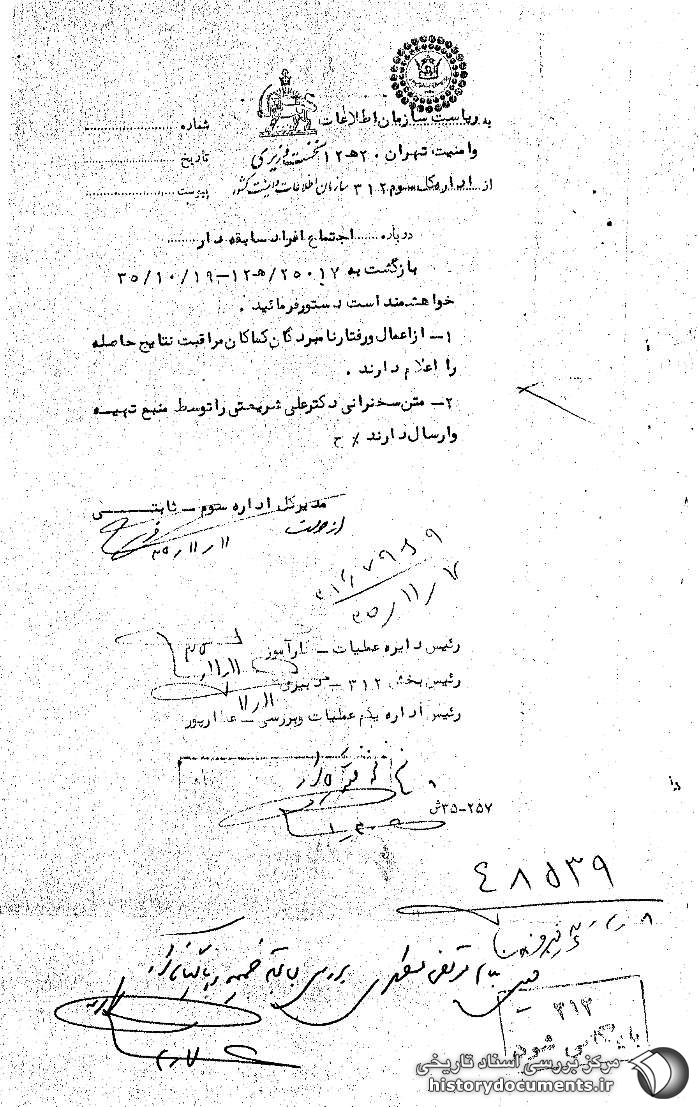 به ریاست سازمان اطلاعات
شماره
وامنیت تهران ۲۰ هـ ۱۲ نخست وزیری
تاریخ
از اداره کل سوم ۳۱۲ سازمان اطلاعات و امنیت کشور
پیوست
درباره اجتماع افراد سابقه دار
بازگشت به ۲۵۰۱۷/هـ۱۲-۳۵/۱۰/۱۹
خواهشمند است دستور فرمائید .
۱ــ از اعمال و رفتار نامبردگان کماکان مراقبت نتایج حاصله
را اعلام دارند .
۲ــ متن سخنرانی دکتر علی شریعتی را توسط منبع تهیـه
و ارسال دارند ٪ ح
مدیر کل اداره سوم ــ ثابتی
از طرف
۳۵/۱۱/۱۱
۳۱۲/۷۹۸۹
۳۵/۱۱/۷
رئیس دایره عملیات ــ کارآموز
رئیس بخش ۳۱۲ ــ
رئیس اداره یکم عملیات و بررسی ــ عطارپور
۳۵-۲۵۷ش
٤٨٥٣٩
مرتضی مطهری بررسی
۳۱۲
بایگانی شود
مرکز بررسی اسناد تاریخی
historydocuments.ir